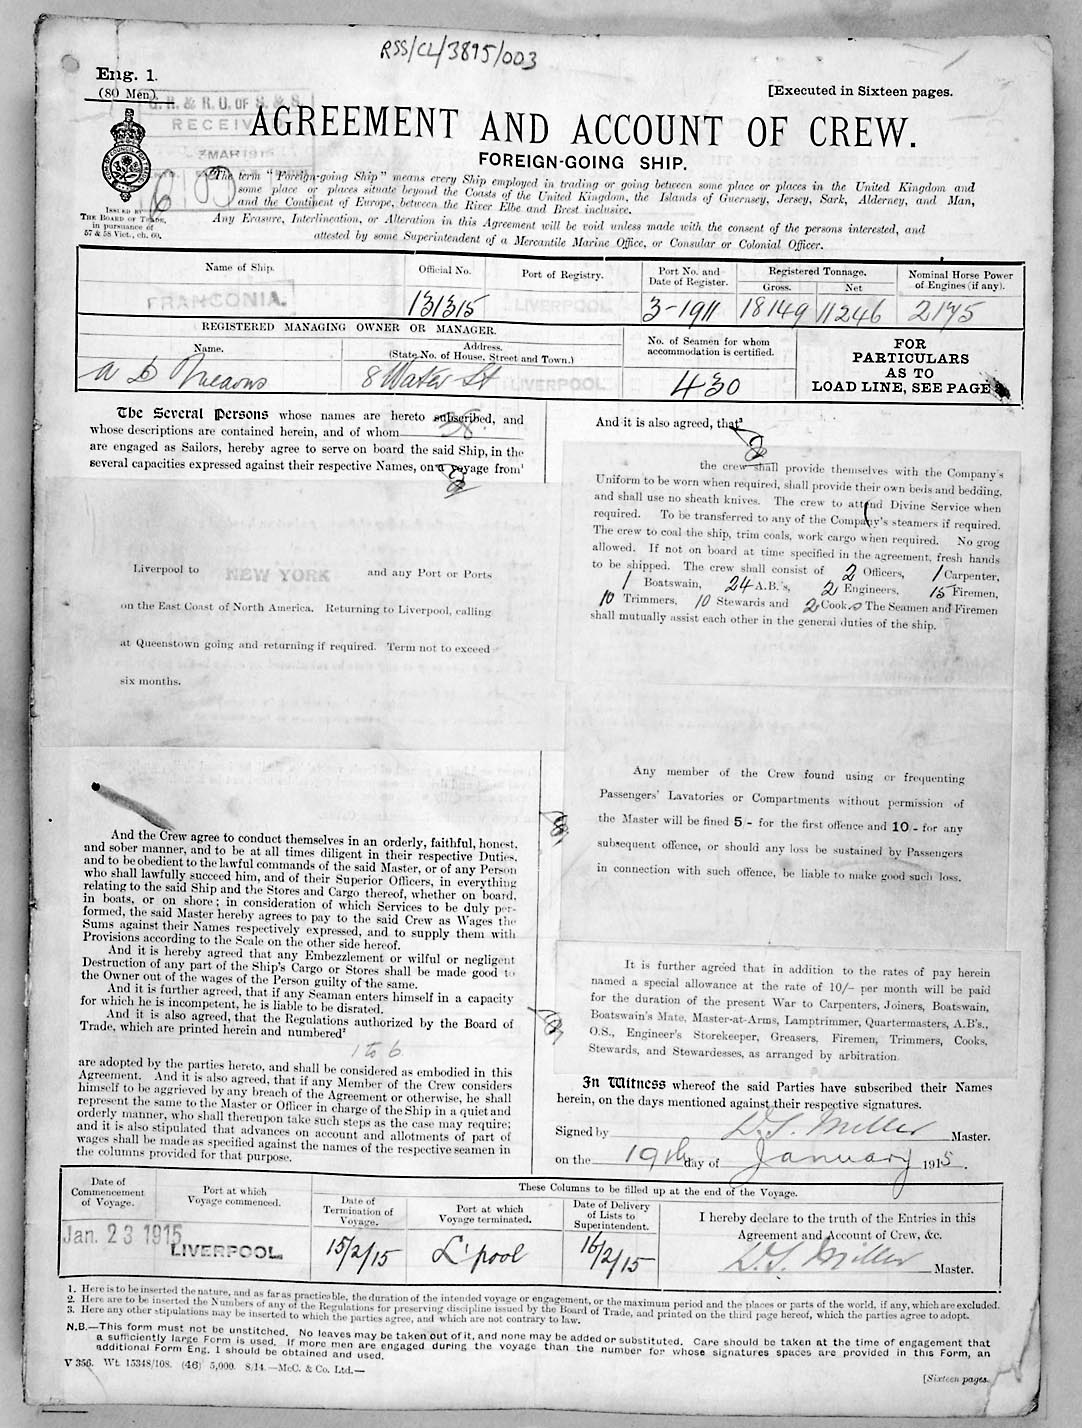 RSS/CL/3895/003
Eng. 1.
(80 Men).
[Executed in Sixteen pages.
G. R. & R. O. OF S. & S.
RECEIVED
AGREEMENT AND ACCOUNT OF CREW.
FOREIGN-GOING SHIP.
The term "Foreign-going Ship" means every Ship employed in trading or going between some place or places in the United Kingdom and
some place or places situate beyond the Coasts of the United Kingdom, the Islands of Guernsey, Jersey, Sark, Alderney, and Man,
and the Continent of Europe, between the River Elbe and Brest inclusive.
Any Erasure, Interlineation, or Alteration in this Agreement will be void unless made with the consent of the persons interested, and
attested by some Superintendent of a Mercantile Marine Office, or Consular or Colonial Officer.
ISSUED BY
THE BOARD OF TRADE,
in pursuance of
57 & 58 Vict., ch. 60.
Name of Ship.
FRANCONIA.
Official No.
131315
Port of Registry.
LIVERPOOL
Port No. and
Date of Register.
3-1911
Registered Tonnage.
Gross.
18149
Net
11246
Nominal Horse Power
of Engines (if any).
2175
REGISTERED MANAGING OWNER OR MANAGER.
Name.
A D Mearns
Address.
(State No. of House, Street and Town.)
8 Water St LIVERPOOL
No. of Seamen for whom
accommodation is certified.
430
FOR
PARTICULARS
AS TO
LOAD LINE, SEE PAGE
The Several Persons whose names are hereto subscribed, and
whose descriptions are contained herein, and of whom 38
are engaged as Sailors, hereby agree to serve on board the said Ship, in the
several capacities expressed against their respective Names, on a voyage from¹
Liverpool to NEW YORK and any Port or Ports
on the East Coast of North America. Returning to Liverpool, calling
at Queenstown going and returning if required. Term not to exceed
six months.
And the Crew agree to conduct themselves in an orderly, faithful, honest,
and sober manner, and to be at all times diligent in their respective Duties,
and to be obedient to the lawful commands of the said Master, or of any Person
who shall lawfully succeed him, and of their Superior Officers, in everything
relating to the said Ship and the Stores and Cargo thereof, whether on board,
in boats, or on shore; in consideration of which Services to be duly per-
formed, the said Master hereby agrees to pay to the said Crew as Wages the
Sums against their Names respectively expressed, and to supply them with
Provisions according to the Scale on the other side hereof.
And it is hereby agreed that any Embezzlement or wilful or negligent
Destruction of any part of the Ship's Cargo or Stores shall be made good to
the Owner out of the wages of the Person guilty of the same.
And it is further agreed, that if any Seaman enters himself in a capacity
for which he is incompetent, he is liable to be disrated.
And it is also agreed, that the Regulations authorized by the Board of
Trade, which are printed herein and numbered²
1 to 6
are adopted by the parties hereto, and shall be considered as embodied in this
Agreement. And it is also agreed, that if any Member of the Crew considers
himself to be aggrieved by any breach of the Agreement or otherwise, he shall
represent the same to the Master or Officer in charge of the Ship in a quiet and
orderly manner, who shall thereupon take such steps as the case may require;
and it is also stipulated that advances on account and allotments of part of
wages shall be made as specified against the names of the respective seamen in
the columns provided for that purpose.
And it is also agreed, that³
the crew shall provide themselves with the Company's
Uniform to be worn when required, shall provide their own beds and bedding,
and shall use no sheath knives. The crew to attend Divine Service when
required. To be transferred to any of the Company's steamers if required.
The crew to coal the ship, trim coals, work cargo when required. No grog
allowed. If not on board at time specified in the agreement, fresh hands
to be shipped. The crew shall consist of 2 Officers, 1 Carpenter,
1 Boatswain, 24 A.B.'s, 2 Engineers, 15 Firemen,
10 Trimmers, 10 Stewards and 2 Cooks The Seamen and Firemen
shall mutually assist each other in the general duties of the ship.
Any member of the Crew found using or frequenting
Passengers' Lavatories or Compartments without permission of
the Master will be fined 5/- for the first offence and 10/- for any
subsequent offence, or should any loss be sustained by Passengers
in connection with such offence, be liable to make good such loss.
It is further agreed that in addition to the rates of pay herein
named a special allowance at the rate of 10/- per month will be paid
for the duration of the present War to Carpenters, Joiners, Boatswain,
Boatswain's Mate, Master-at-Arms, Lamptrimmer, Quartermasters, A.B's.,
O.S., Engineer's Storekeeper, Greasers, Firemen, Trimmers, Cooks,
Stewards, and Stewardesses, as arranged by arbitration.
In Witness whereof the said Parties have subscribed their Names
herein, on the days mentioned against their respective signatures.
Signed by D. S. Miller Master.
on the 19th day of January 1915.
Date of
Commencement
of Voyage.
Jan. 23 1915
Port at which
Voyage commenced.
LIVERPOOL
These Columns to be filled up at the end of the Voyage.
Date of
Termination of
Voyage.
15/2/15
Port at which
Voyage terminated.
L'pool
Date of Delivery
of Lists to
Superintendent.
16/2/15
I hereby declare to the truth of the Entries in this
Agreement and Account of Crew, &c.
D. S. Miller Master.
1. Here is to be inserted the nature, and as far as practicable, the duration of the intended voyage or engagement, or the maximum period and the places or parts of the world, if any, which are excluded.
2. Here are to be inserted the Numbers of any of the Regulations for preserving discipline issued by the Board of Trade, and printed on the third page hereof, which the parties agree to adopt.
3. Here any other stipulations may be inserted to which the parties agree, and which are not contrary to law.
N.B.—This form must not be unstitched. No leaves may be taken out of it, and none may be added or substituted. Care should be taken at the time of engagement that
a sufficiently large Form is used. If more men are engaged during the voyage than the number for whose signatures spaces are provided in this Form, an
additional Form Eng. 1 should be obtained and used.
V 356. Wt. 15348/108. (46) 5,000. 8/14.—McC. & Co. Ltd.—
[Sixteen pages.